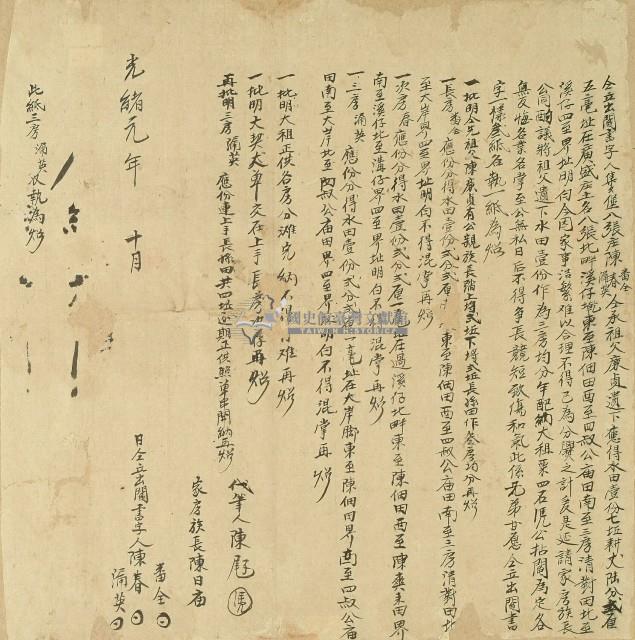 仝立出鬮書字人隻伍八張庄陳番仝春湧英仝承祖父廉貞遺下應得水田壹份七坵耕大陆分弍厘
五毫址在廣盛庄土名八張北畔溪仔墘東至陳佃田西至四叔公庙田南至三房清對田北至
溪仔四至界址明白今因家事沼繁难以合理不得已為分爨之計爰是延請家房族長
公同酌議將祖父遺下水田壹份作為三房均分年配納大租粟四石凭公拈鬮為定各
無反悔各業各掌至公無私日后不得爭長競短致傷和氣此係兄弟甘愿仝立出鬮書
字一樣叁紙各執一紙為炤
一批明仝先祖父陳廉貞有公親族長踏上埒弍坵下埒壹坵長孫田作叁房均分再炤
一長房番仝應份分得水田壹份弍分弍厘東至陳佃田西至四叔公庙田南至三房清對田北
至大岸界四至界址明白不得混掌再炤
一次房春應份分得水田壹份弍分弍厘址在過溪仔北畔東至陳佃田西至陳爽来田界
南至溪仔北至溝仔界四至界址明白不得混掌再炤
一三房湧英應份分得水田壹份弍分弍厘一毫址在大岸腳東至陳佃田界西至四叔公庙
田南至大岸北至四叔公庙田界四至界址明白不得混掌再炤
一批明大租正供各房分摊完納不得刁难再炤
一批明大契丈單交在上手長房收存再炤
再批明三房湧英應份連上手長孫田共四坵逐期正供照單串開納再炤
代筆人陳
家房族長陳日庙
光緒元年十月
日仝立出鬮書字人陳番仝春湧英
此紙三房湧英收執為炤
國史館臺灣文獻館
TAIWAN HISTORICA